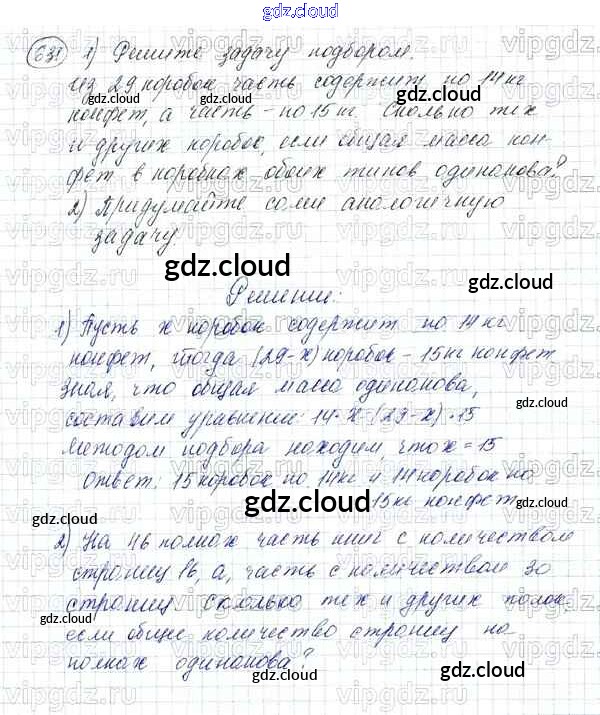 gdz.cloud
631 1) Решите задачу подбором.
Из 29 коробок часть содержит по 14 кг
конфет, а часть - по 15 кг. Сколько тех
и других коробок, если общая масса кон-
фет в коробках обоих типов одинакова?
2) Придумайте сами аналогичную
задачу.
gdz.cloud
Решение:
1) Пусть x коробок содержит по 14 кг
конфет, тогда (29-x) коробок - 15 кг конфет
Зная, что общая масса одинакова,
составим уравнение: 14·x=(29-x)·15
Методом подбора находим, что x=15
Ответ: 15 коробок по 14 кг и 14 коробок по
15 кг конфет.
gdz.cloud
2) На 46 полках часть книг с количеством
страниц 16, а, часть с количеством 30
страниц сколько тех и других полок
если общее количество страниц на
полках одинакова?